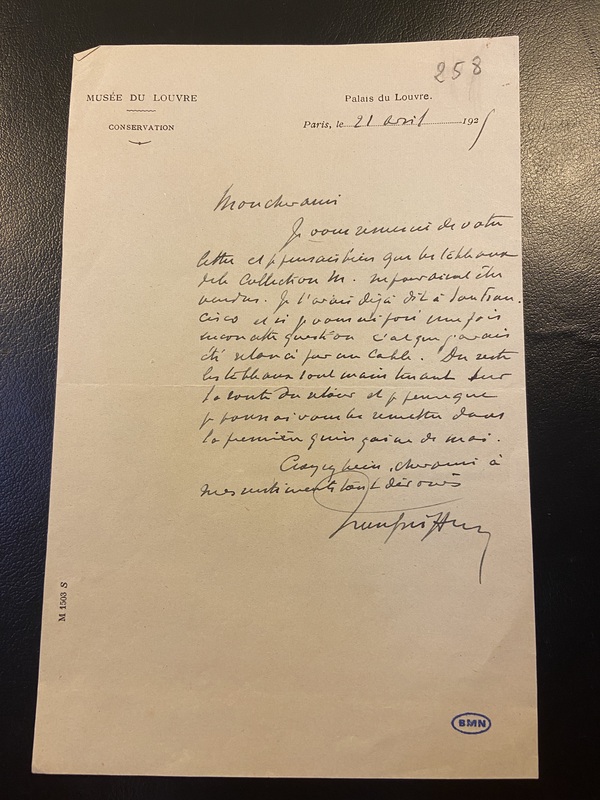 258
MUSÉE DU LOUVRE
CONSERVATION
Palais du Louvre.
Paris, le 21 avril 1925
Mon cher ami
Je vous remercie de votre
lettre et je pensais bien que les tableaux
de la Collection M. ne pouvaient être
vendus. Je l'avais déjà dit à San Fran.
cisco et si je vous ai posé une fois
encore cette question c'est que j'avais
été relancé par un cable. Du reste
les tableaux sont maintenant sur
la route du retour et je pense que
je pourrai vous les remettre dans
la première quinzaine de mai.
Croyez bien, cher ami à
mes sentiments tout dévoués
M 1503 S
BMN